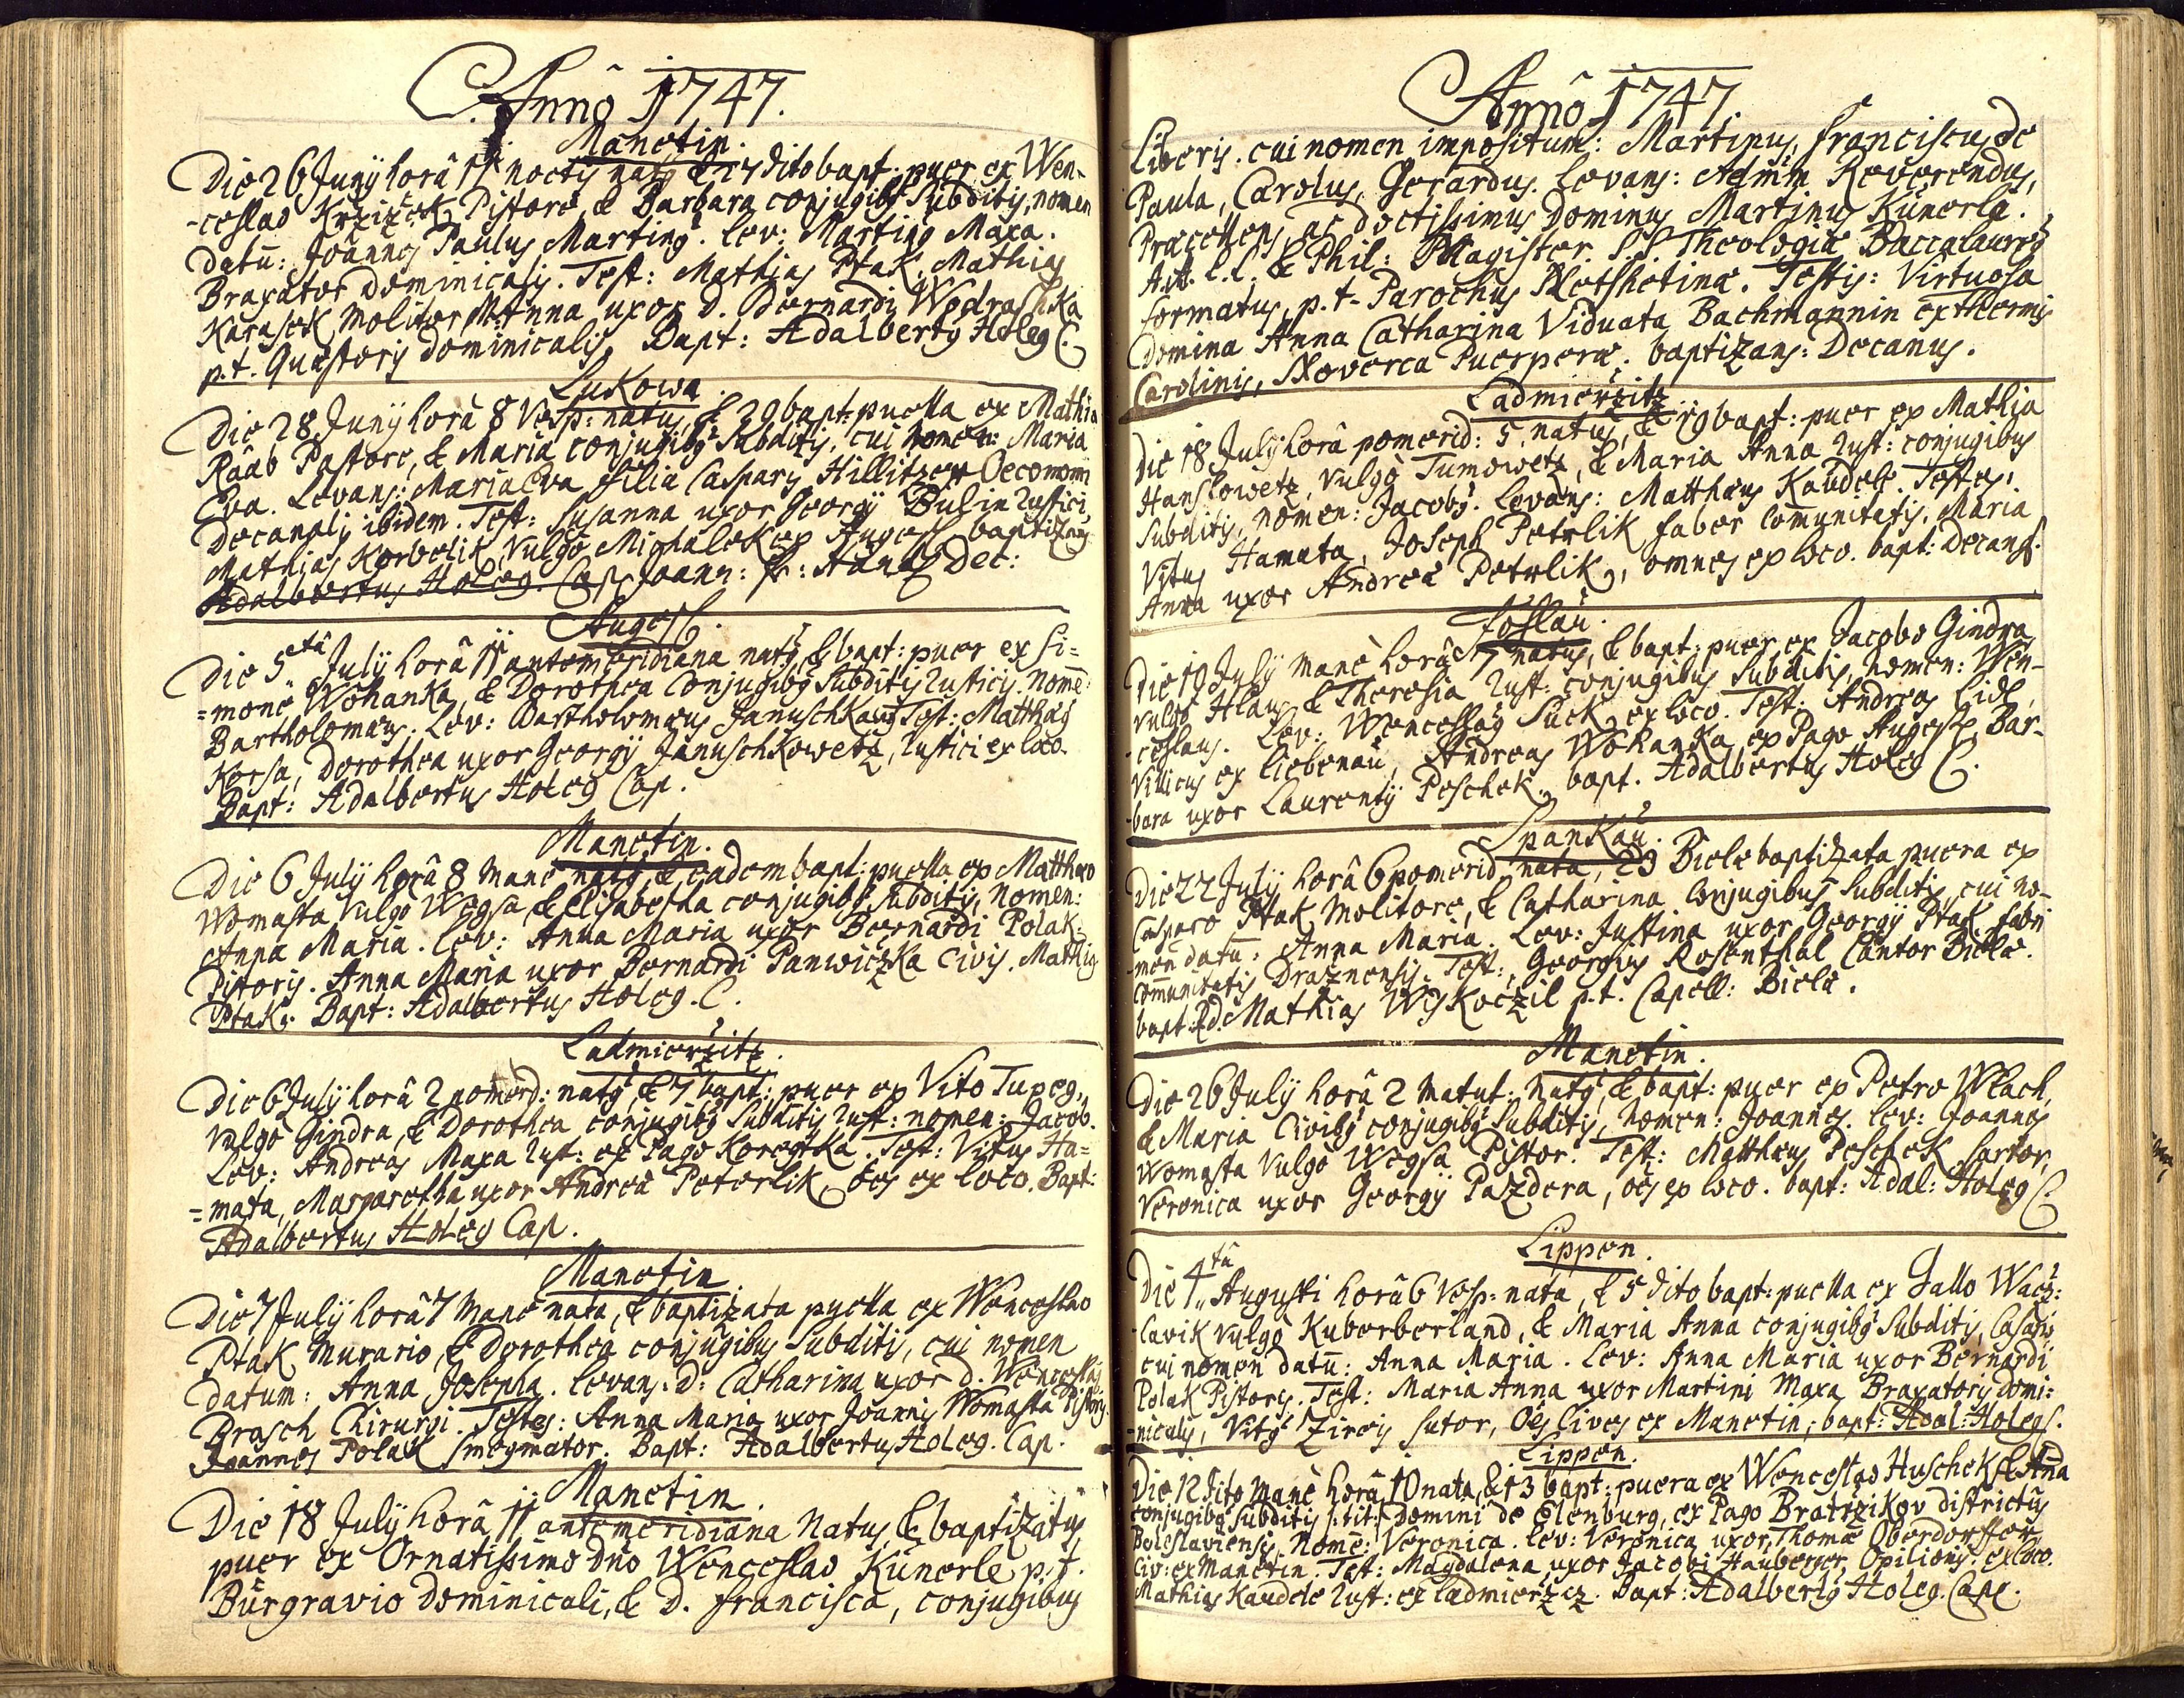 Annô 1747.
Manetin.
Die 26 Junÿ horâ 11 noctis natq & 27 dito bapt: puer ex Wen-
-ceslao Krzizek Pistore, & Barbara conjugibq Subditis, nomen
datū: Joannes Paulus Martinq. Lev: Martinq Maxa.
Braxator Dominicalis. Test: Mathias Ptak. Mathias
Karasek Molitor. M. Anna uxor D. Bernardi Wodraschka
p.t. Quæstoris Dominicalis. Bapt: Adalbertq Holeg C.
Lukowa.
Die 28 Junÿ horâ 8 Vesp: natus, & 29 bapt: puella ex Mathia
Raab Pastore, & Maria conjugibq Subditis, cui nomen: Maria
Eva. Levans: Maria Eva filia Caspary Hillitzer Oeconomi
Decanalis ibidem. Test: Susanna uxor Georgÿ Bulin Rustici,
Mathias Korbelik, Vulgo Michalek ex Augest baptizans
Adalbertus Holeg. Cap. Joann: Dec:
Augest.
Die 5tâ July horâ 11 antemeridiana natq, & bapt: puer ex Si=
=mone Wohanka, & Dorothea Conjugibq Subditis Rusticis. Nomē:
Bartholomæus. Lev: Bartholomæus Januschka Test: Matthæq
Korsa, Dorothea uxor Georgÿ Januschkowetz, Rustici ex loco.
Bapt: Adalbertus Holeg Cap.
Manetin.
Die 6 July horâ 8 Manè natq & eadem bapt: puella ex Matthæo
Womasta Vulgò Wegsa & Elisabetha conjugibq Subditis, Nomen:
Anna Maria. Lev: Anna Maria uxor Bernardi Polak
Pistoris. Anna Maria uxor Bernardi Panwiczka Civis. Mathiq
Ptak. Bapt: Adalbertus Holeg. C.
Ladmierzitz.
Die 6 July horâ 2 pomerd: natq & 7 bapt: puer ex Vito Tupeg,
Vulgò Gindra, & Dorothea conjugibq Subditis Rust: nomen: Jacob.
Lev: Andreas Maxa Rust: ex Pago Koregtka. Test: Vitus Ha=
=mata, Margaretha uxor Andreæ Peterlik, oēs ex loco. Bapt:
Adalbertus Holeg Cap.
Manetin.
Die 7 July horâ 7 Manè nata, & baptizata puella ex Wenceslao
Ptak Murario, & Dorothea conjugibus Subditis, cui nomen
datum: Anna Josepha. Levans: D: Catharina uxor D. Wenceslai
Brasch Chirurgi. Testes: Anna Maria uxor Joannis Womasta Pistoris.
Joannes Polak Smegmator. Bapt: Adalbertus Holeg. Cap.
Manetin.
Die 18 July horâ 11 antemeridiana Natus, & baptizatus
puer ex Ornatissimo Dño Wenceslao Künerle p.t.
Burgravio Dominicali, & D. Francisca, conjugibus
Annô 1747.
Liberis. cui nomen impositum: Martinus, Franciscus de
Paula, Carolus, Gerardus. Levans: Admm̄ Reverendus,
Præcellens, ac doctissimus Dominus Martinus Künerle.
A.A. L.L. & Phil: Magister. S.S. Theologiæ Baccalaureq
Formatus, p.t. Parochus Netshetinæ. Testis: Virtuosa
Domina Anna Catharina Viduata Bachmannin ex thermis
Carolinis, Noverca Puerperæ. baptizans: Decanus.
Ladmierzitz
Die 18 July horâ pomerid: 5 natus, & 19 bapt: puer ex Mathia
Hanslowetz, vulgò Tumowetz, & Maria Anna Rust: conjugibus
Subditis, nomen: Jacobq. Levans: Matthæus Kaudele. Testes:
Vitus Hamata, Joseph Petrlik faber Comunitatis. Maria
Anna uxor Andreæ Petrlik, omnes ex loco. bapt: Decanq.
Hoslau.
Die 19 July manè horâ 7 natus, & bapt: puer ex Jacobo Gindra
vulgò Hlaus & Theresia Rust: conjugibus Subditis, nomen: Wen-
-ceslaus. Lev: Wenceslaq Suck, ex loco. Test: Andreas Eidl,
Villicus ex Liebenau, Andreas Wohanka ex Pago Augest, Bar-
-bara uxor Laurentÿ Peschek, bapt. Adalbertus Holeg C.
Spankau.
Die 22 July horâ 6 pomerid: nata, 23 Bielæ baptizata puera ex
Casparo Ptak Molitore, & Catharina Conjugibus Subditis, cui no-
-men datū: Anna Maria. Lev: Justina uxor Georgÿ Ptak fabri
Com̄unitatis Drażnensis. Test: Georgius Rosenthal Cantor Bielæ.
bapt: P.D. Mathias Wÿskoczil p.t. Capell: Bielæ.
Manetin.
Die 26 July horâ 2 matut: natq, & bapt: puer ex Petro Wlach,
& Maria Civibq conjugibq Subditis, nomen: Joannes. Lev: Joannes
Womasta Vulgo Wegsa Pistor. Test: Matthæus Peschek Sartor,
Veronica uxor Georgÿ Pazdera, oēs ex loco. bapt: Adal: Holeg C.
Lippen.
Die 4tâ Augusti horâ 6 Vesp: nata, & 5 dito bapt: puella ex Gallo Wacz:
-lavik vulgò Kuberberland, & Maria Anna conjugibq Subditis, Casariis
cui nomen datū: Anna Maria. Lev: Anna Maria uxor Bernardi
Polak Pistoris. Test: Maria Anna uxor Martini Maxa Braxatoris Domi=
-nicalis, Vitq Zireis sutor, Oēs Cives ex Manetin; bapt: Adal: Holeg C.
Lippen.
Die 12 dito Manè horâ 10 nata, & 13 bapt: puera ex Wenceslao Huschek & Aña
conjugibq Subditis tit: Domini de Elenburg, ex Pago Bratrzikov districtûs
Boleslaviensis, Nomē: Veronica. Lev: Veronica uxor Thomæ Oberdorffer
Civ: ex Manetin. Test: Magdalena uxor Jacobi Hauberger, Opilionis: ex loco.
Mathias Kaudele Rust: ex Ladmierżicz. Bapt: Adalbertq Holeg. Cap.